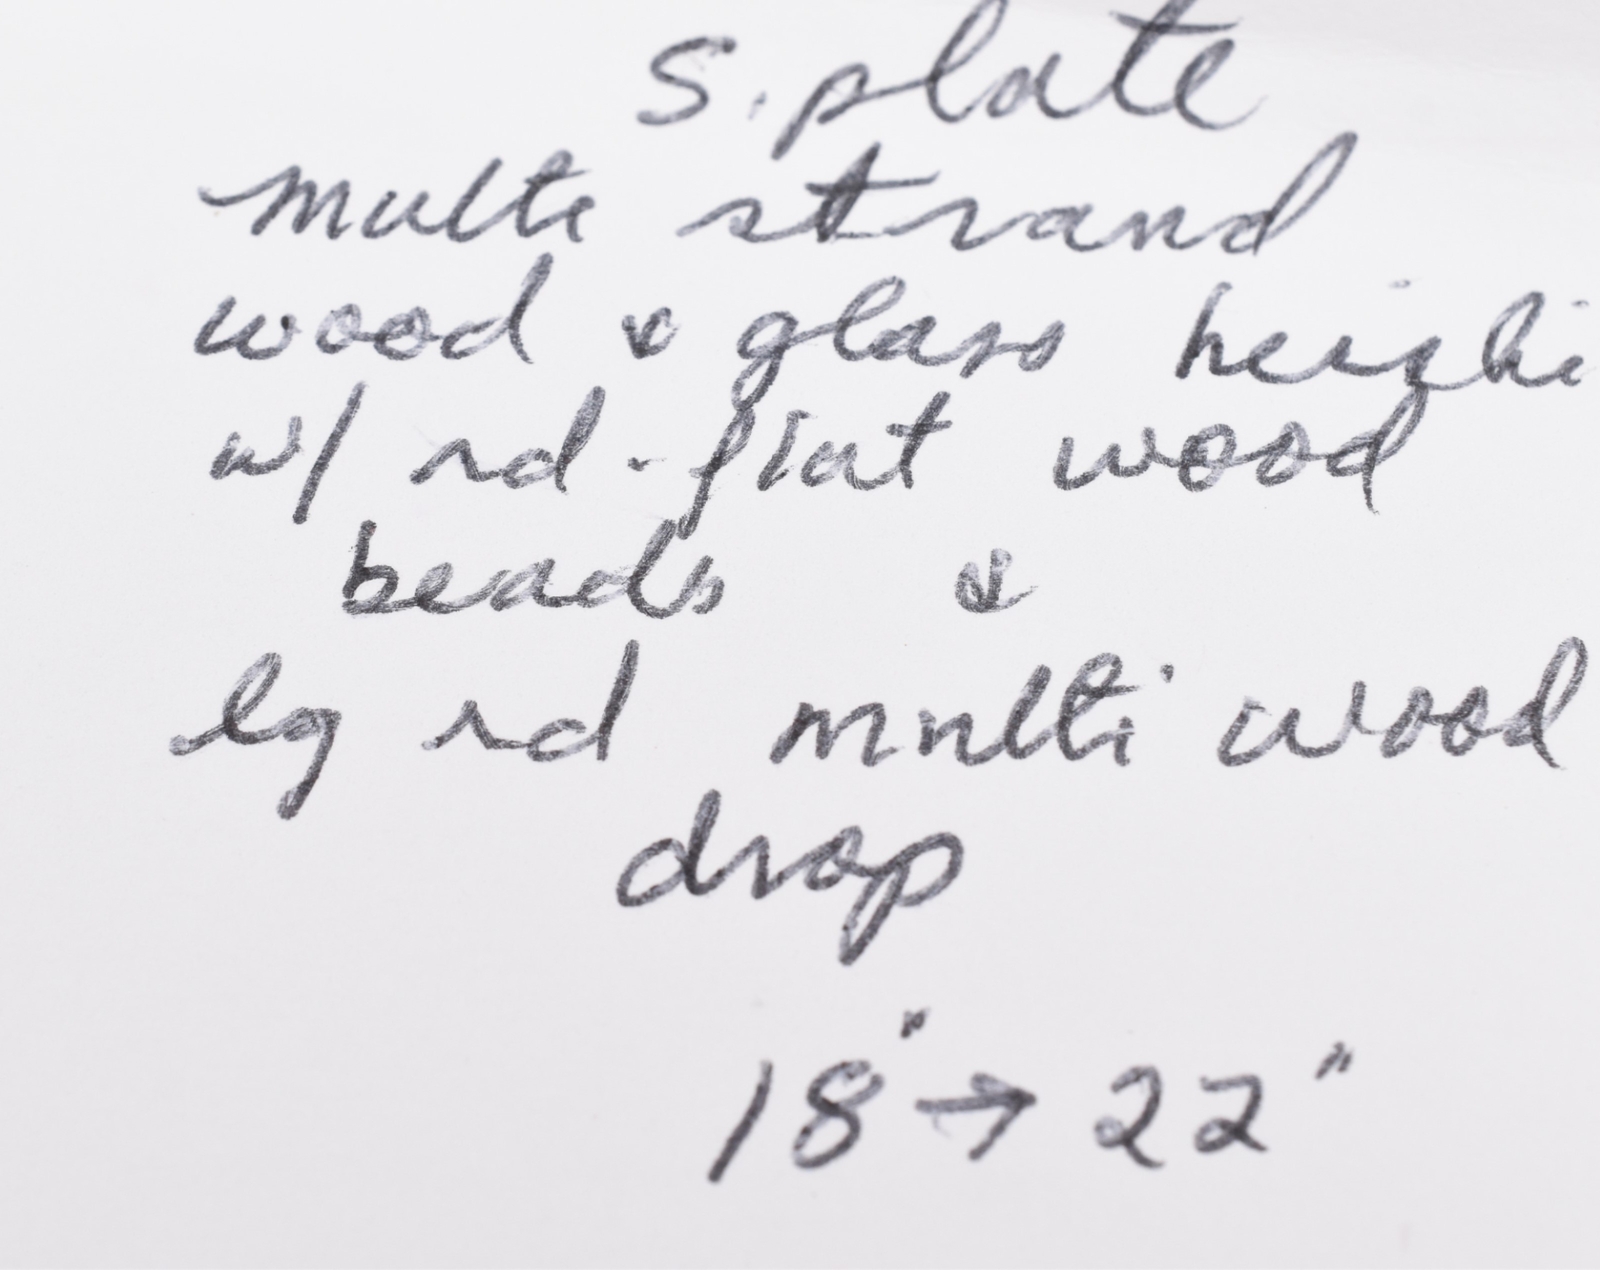 S. plate
multi strand
wood & glass heishi
w/ rd - flat wood
beads &
lg rd multi wood
drop
18" → 22"